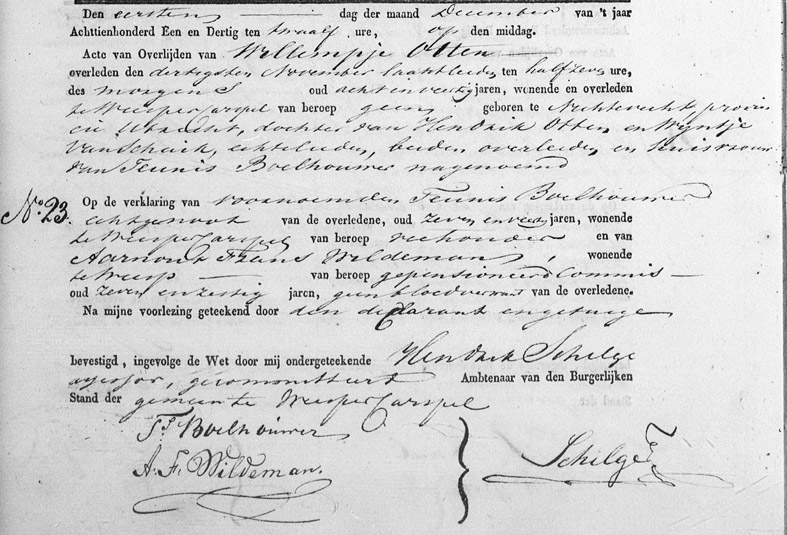 Den eersten dag der maand December van 't jaar
Achttienhonderd Een en Dertig ten twaalf ure, op den middag.
Acte van Overlijden van Willempje Otten
overleden den dertigsten November laatstleden ten half zeven ure,
des morgens oud acht en veertig jaren, wonende en overleden
te Weespercarspel van beroep geen geboren te Aechterecht, provin
cie Utrecht, dochter van Hendrik Otten en Wyntje
van Schaik, echtelieden, beiden overleden, en huisvrouw
van Teunis Boelhouwer nagenoemd
No. 23. Op de verklaring van voornoemden Teunis Boelhouwer
echtgenoot van de overledene, oud zeven en veertig jaren, wonende
te Weespercarspel van beroep veehouder en van
Aarnout Frans Wildeman, wonende
te Weesp van beroep gepensioneerd Commis
oud zeven en zestig jaren, geen bloedverwant van de overledene.
Na mijne voorlezing geteekend door den declarant en getuige
bevestigd, ingevolge de Wet door mij ondergeteekende Hendrik Schilge
assessor, gecommitteerd Ambtenaar van den Burgerlijken
Stand der gemeente Weespercarspel
Ts Boelhouwer
A. F. Wildeman. Schilge